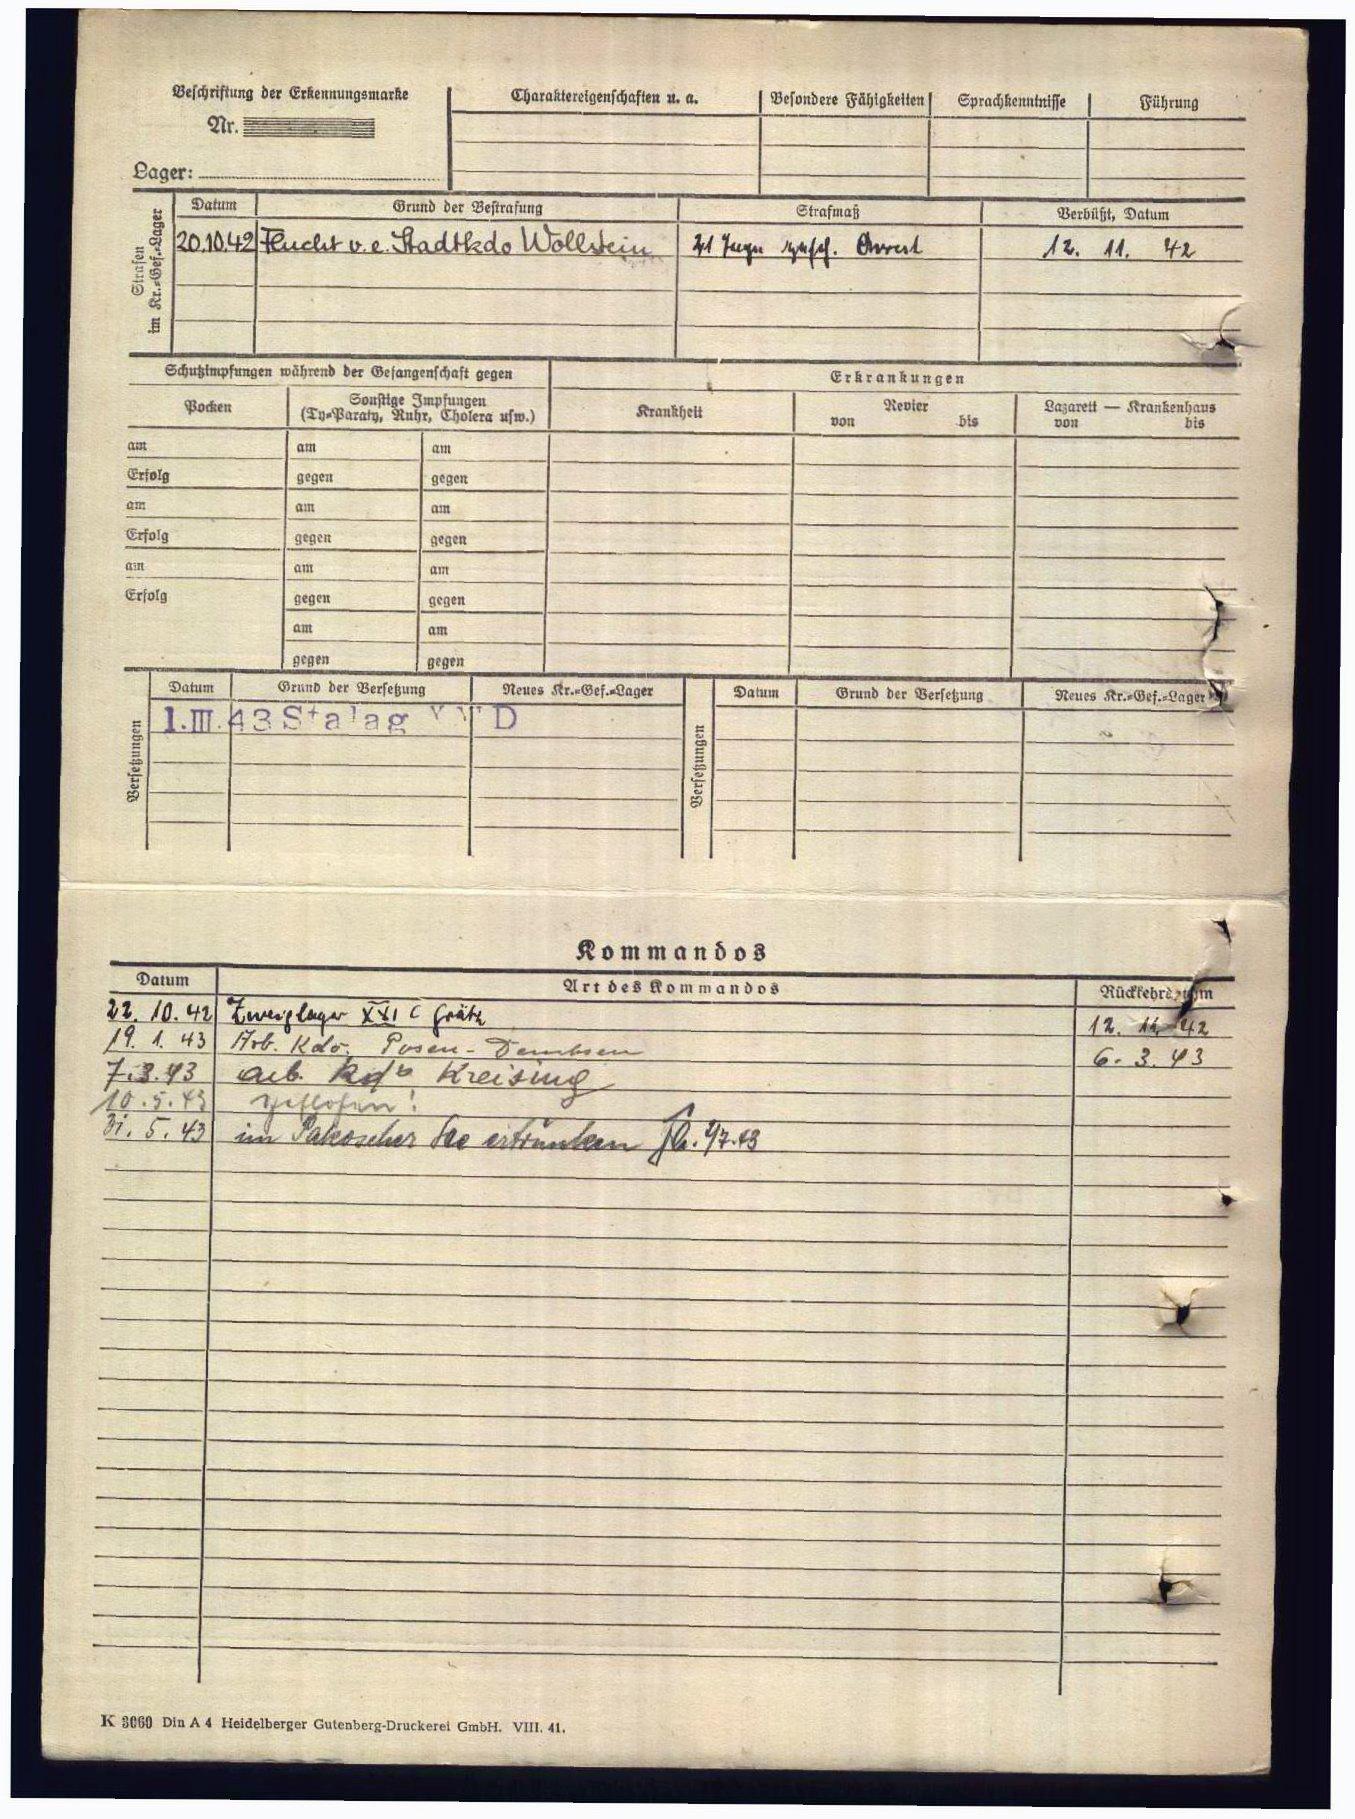 Beschriftung der Erkennungsmarke
Nr.
Lager:
Charaktereigenschaften u. a.
Besondere Fähigkeiten
Sprachkenntnisse
Führung
Strafen im Kr.=Gef.=Lager
Datum
Grund der Bestrafung
Strafmaß
Verbüßt, Datum
20.10.42 Flucht v. e. Stadtkdo Wollstein 21 Tage gesch. Arrest 12. 11. 42
Schutzimpfungen während der Gefangenschaft gegen
Erkrankungen
Pocken
Sonstige Impfungen
(Ty=Paraty, Ruhr, Cholera usw.)
Krankheit
Revier
von bis
Lazarett — Krankenhaus
von bis
am am am
Erfolg gegen gegen
am am am
Erfolg gegen gegen
am am am
Erfolg gegen gegen
am am
gegen gegen
Versetzungen
Datum
Grund der Versetzung
Neues Kr.=Gef.=Lager
Versetzungen
Datum
Grund der Versetzung
Neues Kr.=Gef.=Lager
1.III.43 Stalag D
Kommandos
Datum
Art des Kommandos
22. 10. 42 Zweiglager XXI C Grätz 12. 11. 42
19. 1. 43 Arb. Kdo. Posen - Dembsen 6. 3. 43
7.3.43 arb. Kdo Kreising
10.5.43 geflohen!
31. 5. 43 im Pakoscher See ertrunken
K 3060 Din A 4 Heidelberger Gutenberg-Druckerei GmbH. VIII. 41.